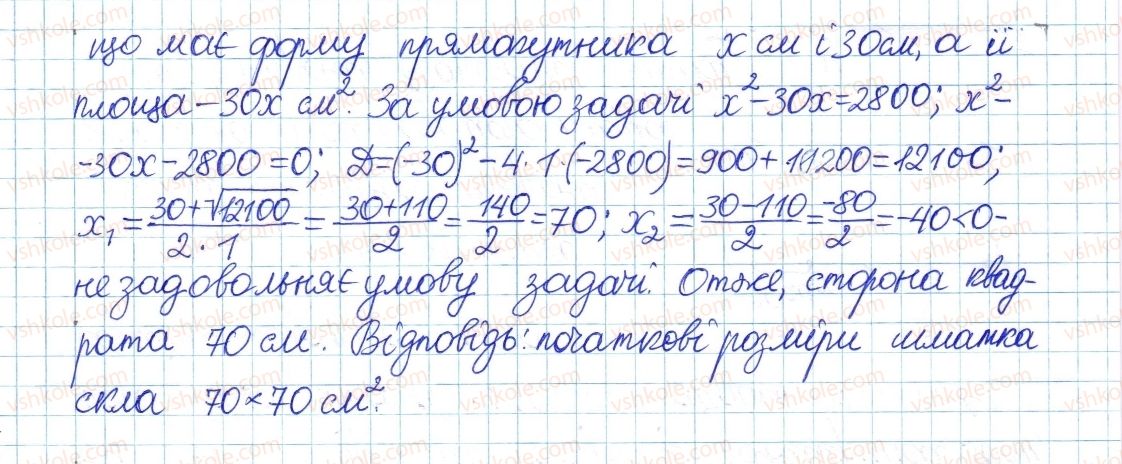 що має форму прямокутника x см і 30см, а її
площа – 30x см². За умовою задачі x²–30x=2800; x²–
-30x–2800=0; D=(–30)²–4·1·(–2800)=900+11200=12100;
x₁=(30+√12100)/(2·1)=(30+110)/2=140/2=70; x₂=(30–110)/2=–80/2=–40<0–
не задовольняє умову задачі. Отже, сторона квад-
рата 70 см. Відповідь: початкові розміри шматка
скла 70×70 см².
vshkole.com